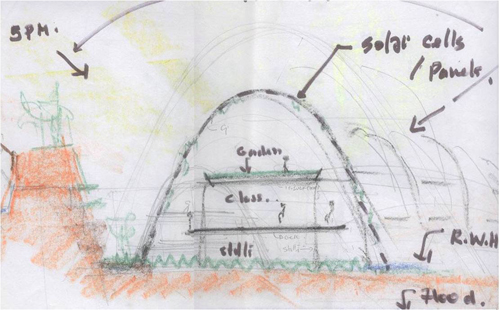 5PM.
solar cells
/ Panels
Garden
class..
stilli
R.W.H
flood.